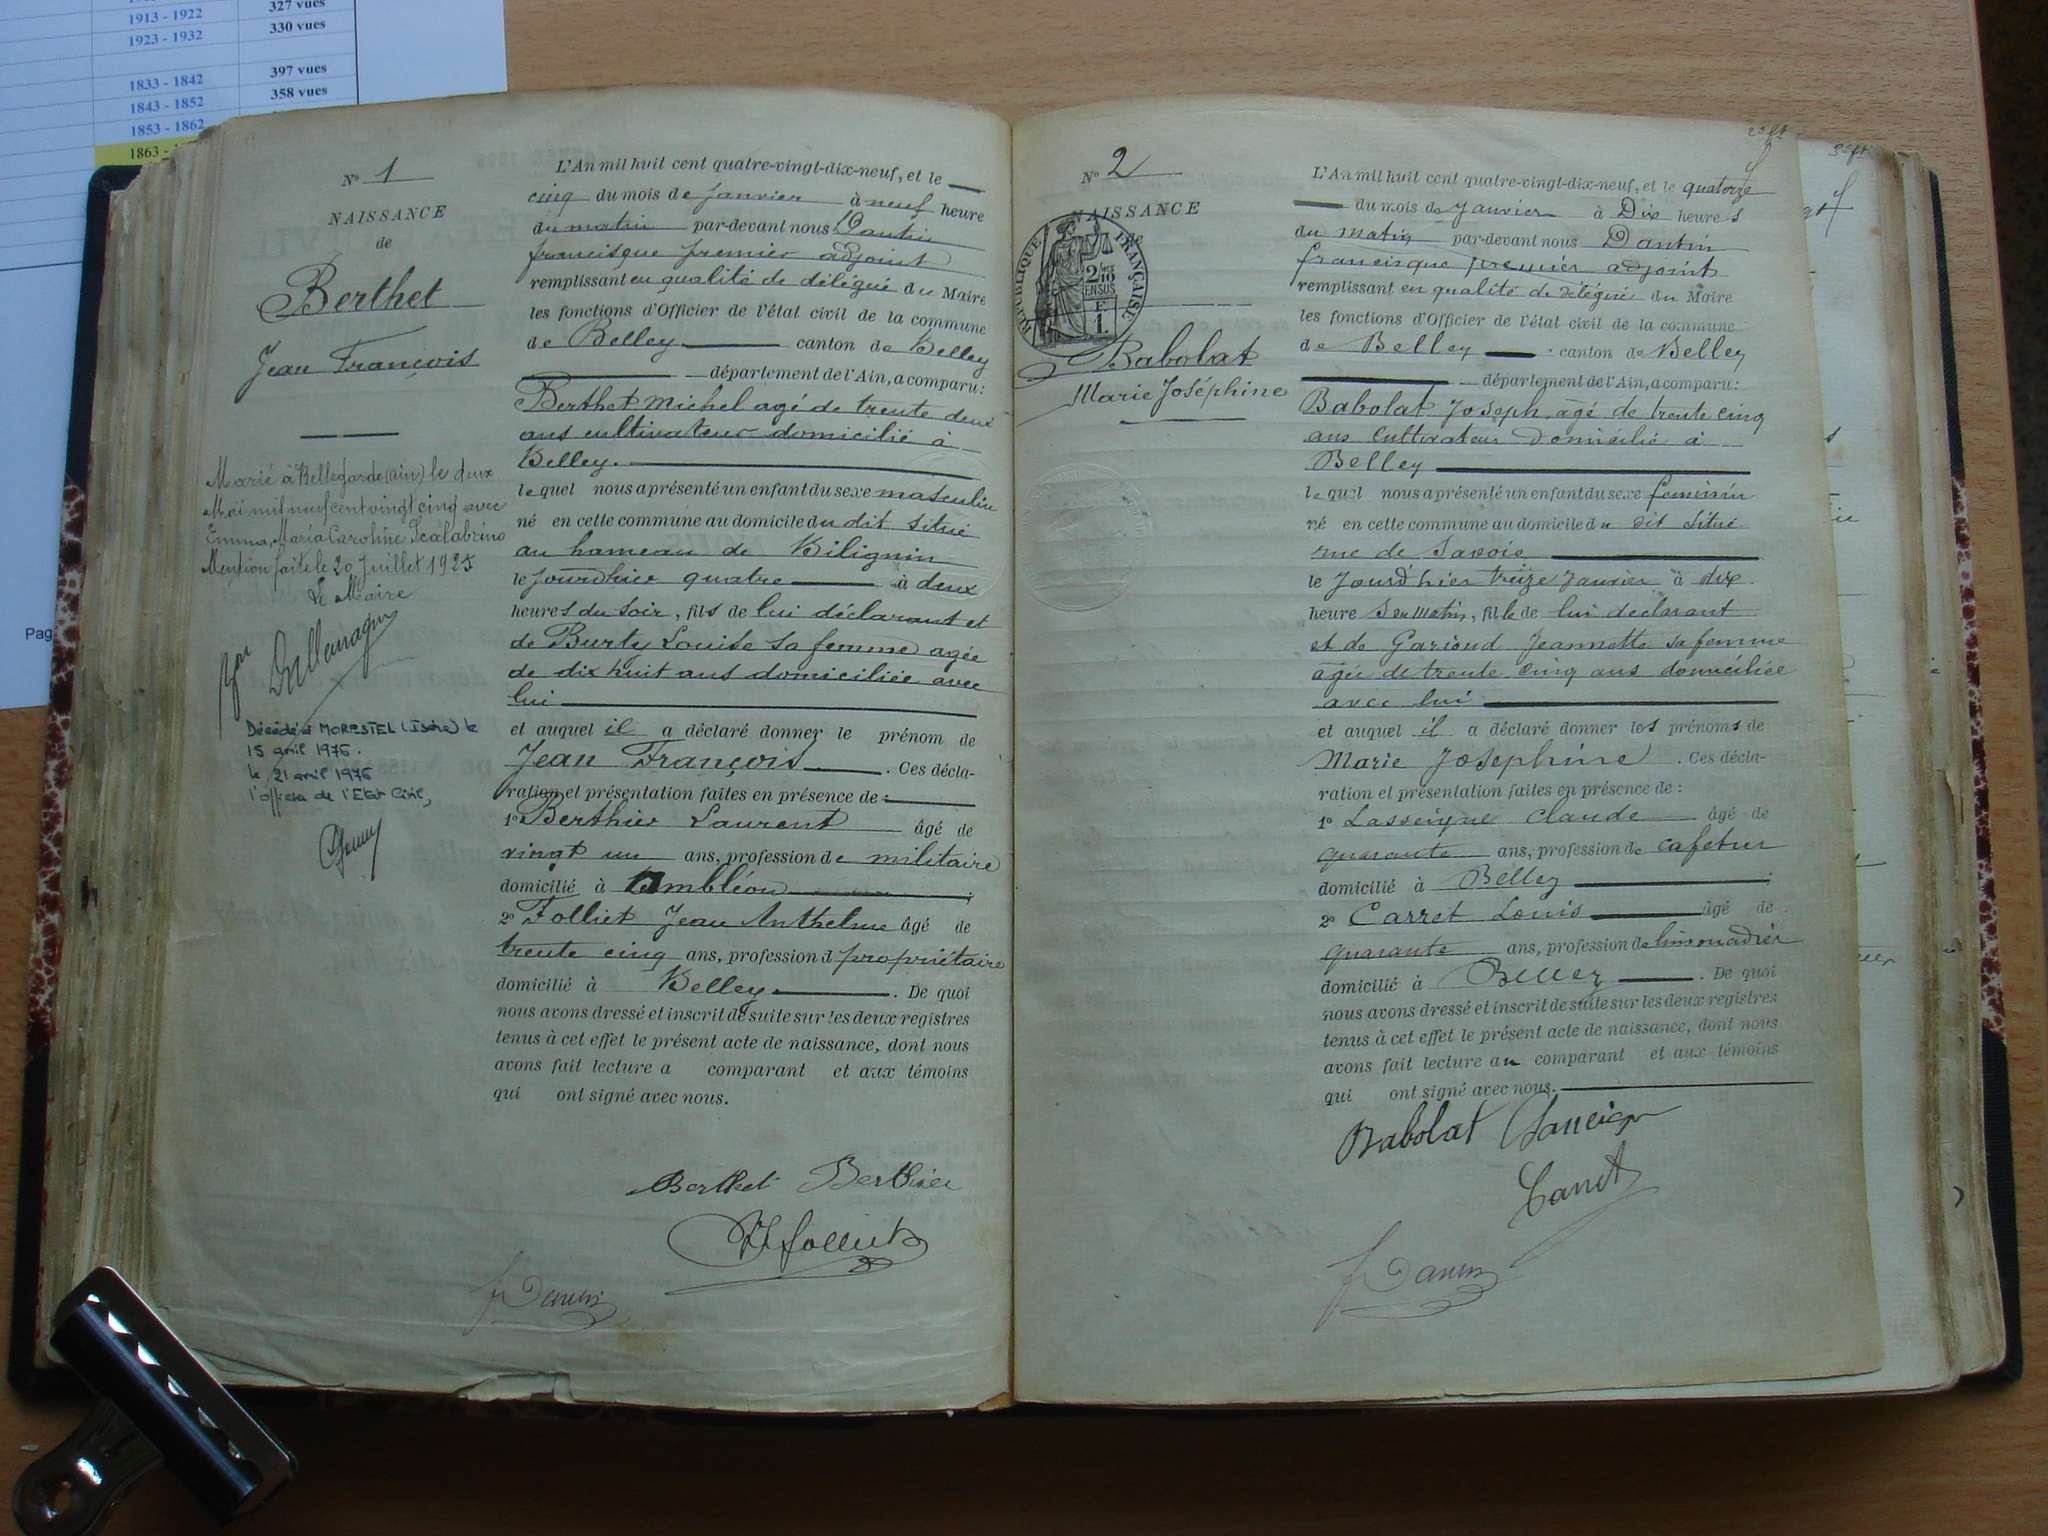 327 vues
1913 - 1922
330 vues
1923 - 1932
397 vues
1833 - 1842
358 vues
1843 - 1852
1853 - 1862
1863 -
Pag
N° 1
NAISSANCE
de
Berthet
Jean François
Marié à Bellegarde (ain) le deux
Mai mil neuf cent vingt cinq avec
Emma, Maria Caroline Scalabrino
Mention faite le 20 Juillet 1925
Le Maire
Décédé à MORESTEL (Isère) le
15 avril 1976.
le 21 avril 1976
l'officier de l'Etat Civil,
L'An mil huit cent quatre-vingt-dix-neuf, et le
cinq du mois de Janvier à neuf heure
du matin par-devant nous Dantin
francisque premier adjoint
remplissant en qualité de délégué du Maire
les fonctions d'Officier de l'état civil de la commune
de Belley canton de Belley
département de l'Ain, a comparu:
Berthet Michel agé de trente deux
ans cultivateur domicilié à
Belley.
le quel nous a présenté un enfant du sexe masculin
né en cette commune au domicile du dit situé
au hameau de Bilignin
le jourdhier quatre à deux
heures du soir, fils de lui déclarant et
de Burty Louise sa femme agée
de dix huit ans domiciliée avec
lui
et auquel il a déclaré donner le prénom de
Jean François. Ces décla-
ration et présentation faites en présence de :
1° Berthier Laurent âgé de
vingt un ans, profession de militaire
domicilié à ambléon ;
2° Folliet Jean Anthelme âgé de
trente cinq ans, profession d propriétaire
domicilié à Belley. De quoi
nous avons dressé et inscrit de suite sur les deux registres
tenus à cet effet le présent acte de naissance, dont nous
avons fait lecture a comparant et aux témoins
qui ont signé avec nous.
Berthet Berthier
Folliet
F Dantin
N° 2
NAISSANCE
de
RÉPUBLIQUE FRANÇAISE
2/10
EN SUS
1 F.
Babolat
Marie Joséphine
2e ft
3e ft
L'An mil huit cent quatre-vingt-dix-neuf, et le quatorze
du mois de Janvier à Dix heures
du matin par-devant nous Dantin
francisque premier adjoint
remplissant en qualité de délégué du Maire
les fonctions d'Officier de l'état civil de la commune
de Belley canton de Belley
département de l'Ain, a comparu:
Babolat Joseph agé de trente cinq
ans cultivateur domicilié à
Belley
le quel nous a présenté un enfant du sexe féminin
né en cette commune au domicile du dit situé
rue de Savoie
le Jourd'hier treize janvier à dix
heures du matin, fille de lui déclarant
et de Garioud Jeannette sa femme
agée de trente cinq ans domiciliée
avec lui
et auquel il a déclaré donner les prénoms de
Marie Josephine. Ces décla-
ration et présentation faites en présence de :
1° Lasseigne Claude âgé de
quarante ans, profession de cafetier
domicilié à Belley ;
2° Carret Louis âgé de
quarante ans, profession de limonadier
domicilié à Belley. De quoi
nous avons dressé et inscrit de suite sur les deux registres
tenus à cet effet le présent acte de naissance, dont nous
avons fait lecture au comparant et aux témoins
qui ont signé avec nous.
Babolat Lasseigne
Carret
F Dantin